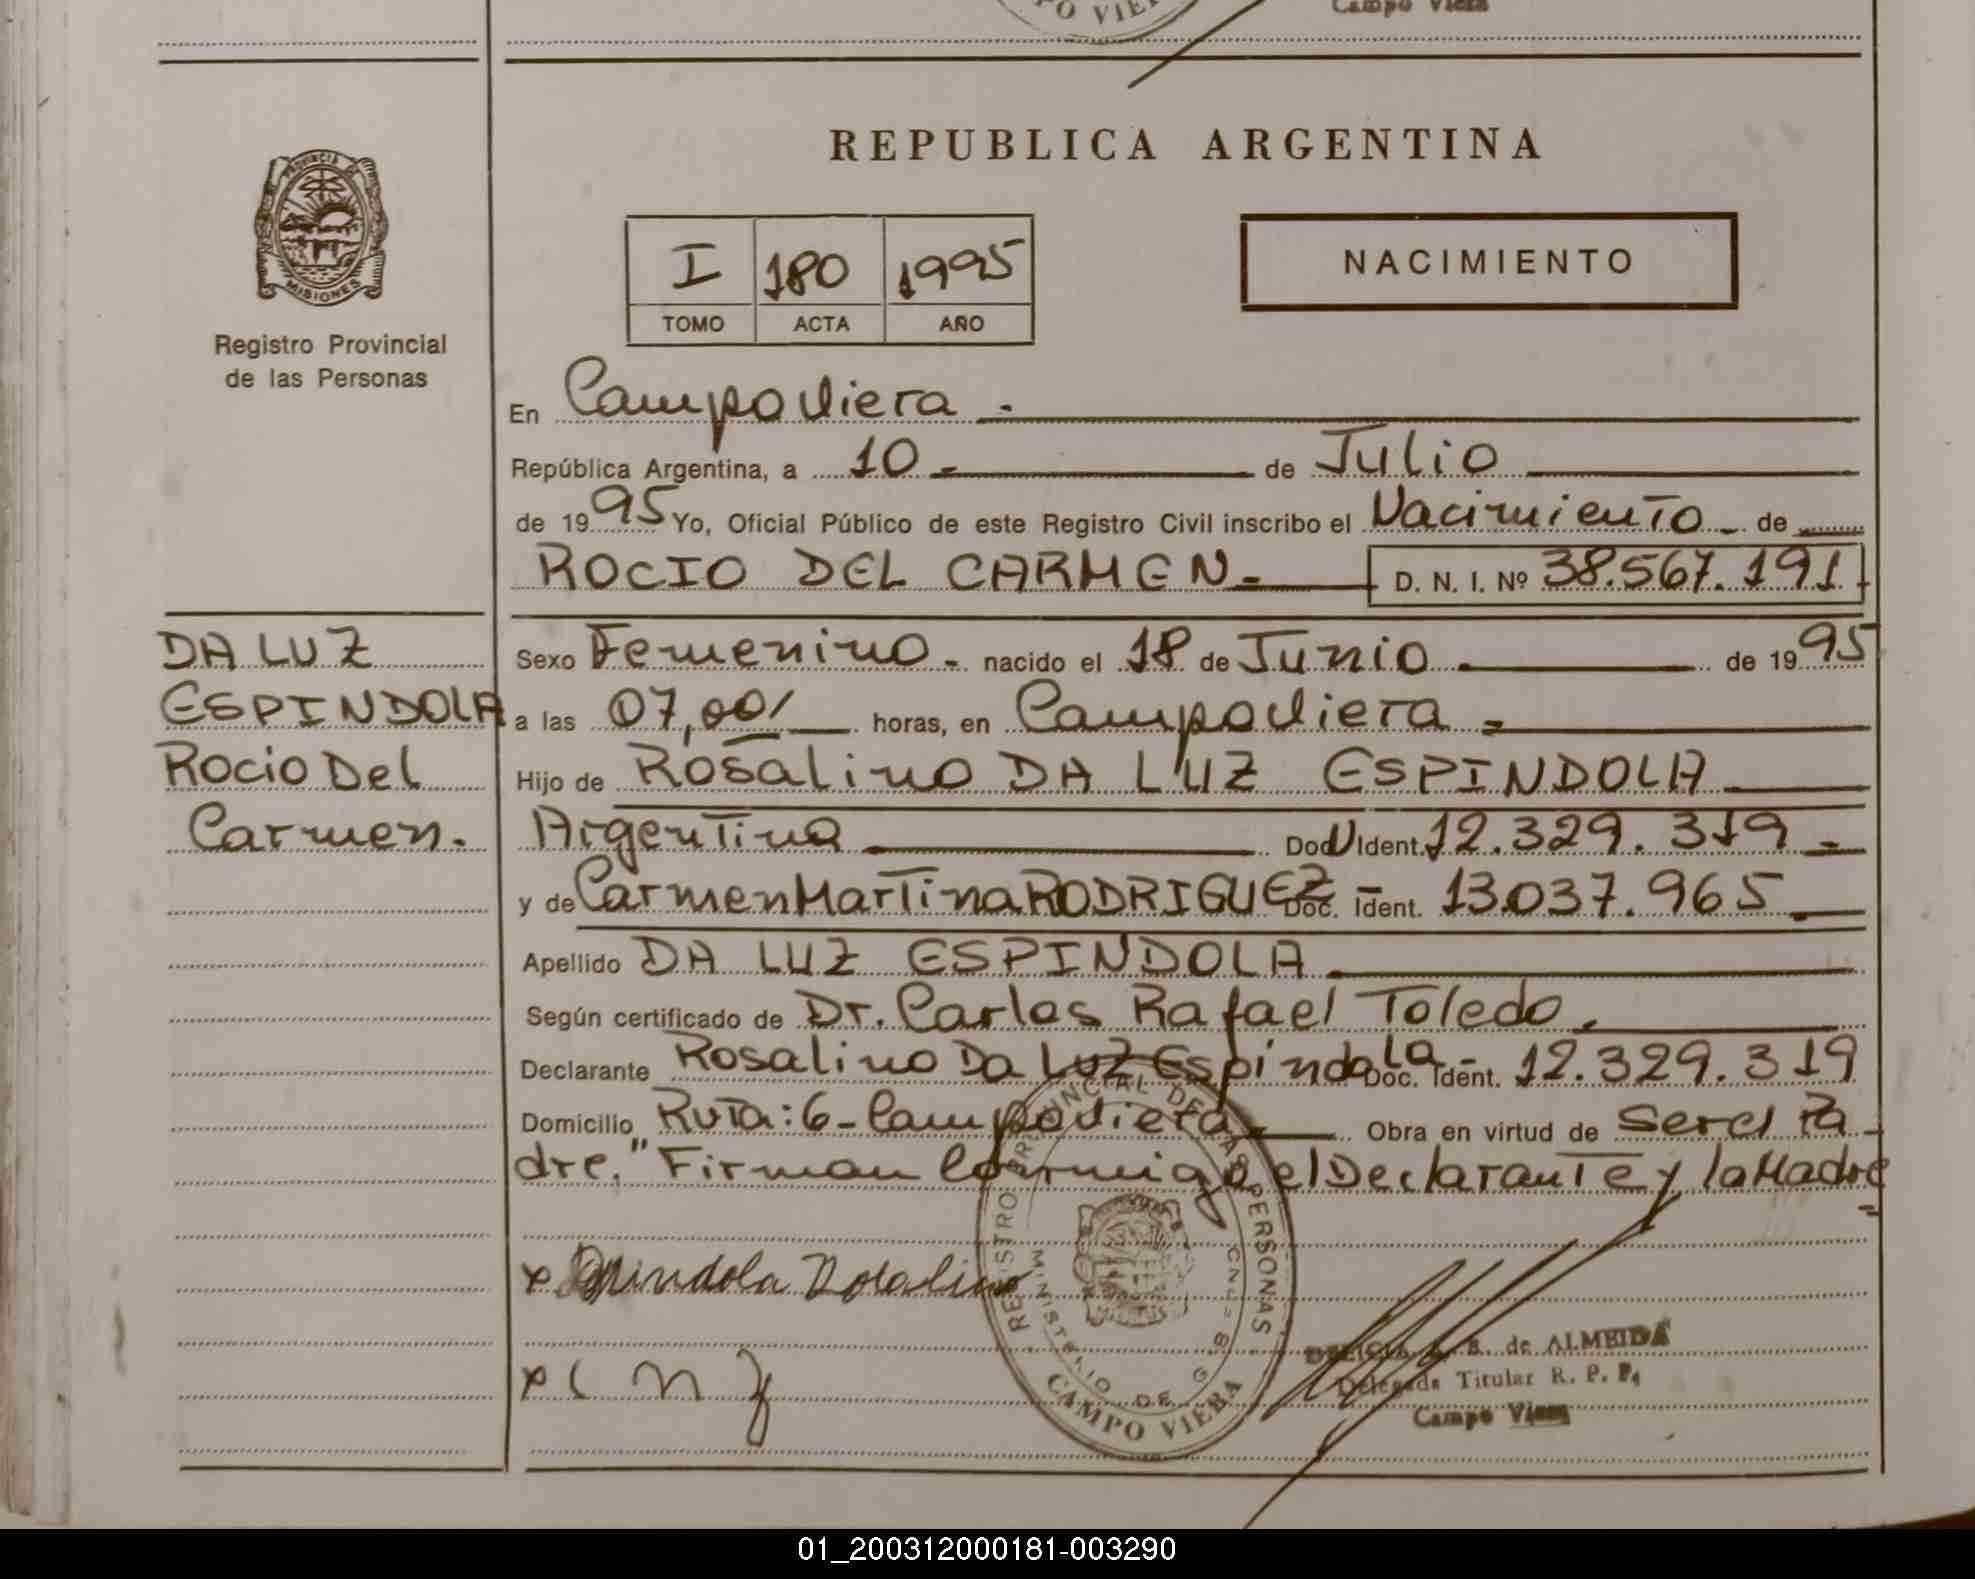 Campo Viera
REPUBLICA ARGENTINA
PROVINCIA DE
MISIONES
Registro Provincial
de las Personas
I 180 1995
TOMO ACTA AÑO
NACIMIENTO
En Campo Viera -
República Argentina, a 10 - de Julio
de 1995 Yo, Oficial Público de este Registro Civil inscribo el Nacimiento - de
ROCIO DEL CARMEN - D. N. I. Nº 38.567.191
DA LUZ
ESPINDOLA
Rocio Del
Carmen.
Sexo Femenino - nacido el 18 de Junio de 1995
a las 07,00/ horas, en Campo Viera -
Hijo de Rosalino DA LUZ ESPINDOLA
Argentina Doc U Ident. 12.329.319 -
y de Carmen Martina RODRIGUEZ - Doc. Ident. 13.037.965
Apellido DA LUZ ESPINDOLA
Según certificado de Dr. Carlos Rafael Toledo.
Declarante Rosalino Da LUZ Espindola - Doc. Ident. 12.329.319
Domicilio Ruta: 6 - Campo Viera - Obra en virtud de ser el Pa-
dre." Firman Conmigo el Declarante y la Madre
=
x Espindola Rosalino
x C M
REGISTRO PROVINCIAL DE LAS PERSONAS
MINISTERIO DE
CAMPO VIERA
de ALMEIDA
Delegada Titular R. P. P.
Campo Viera
01_200312000181-003290